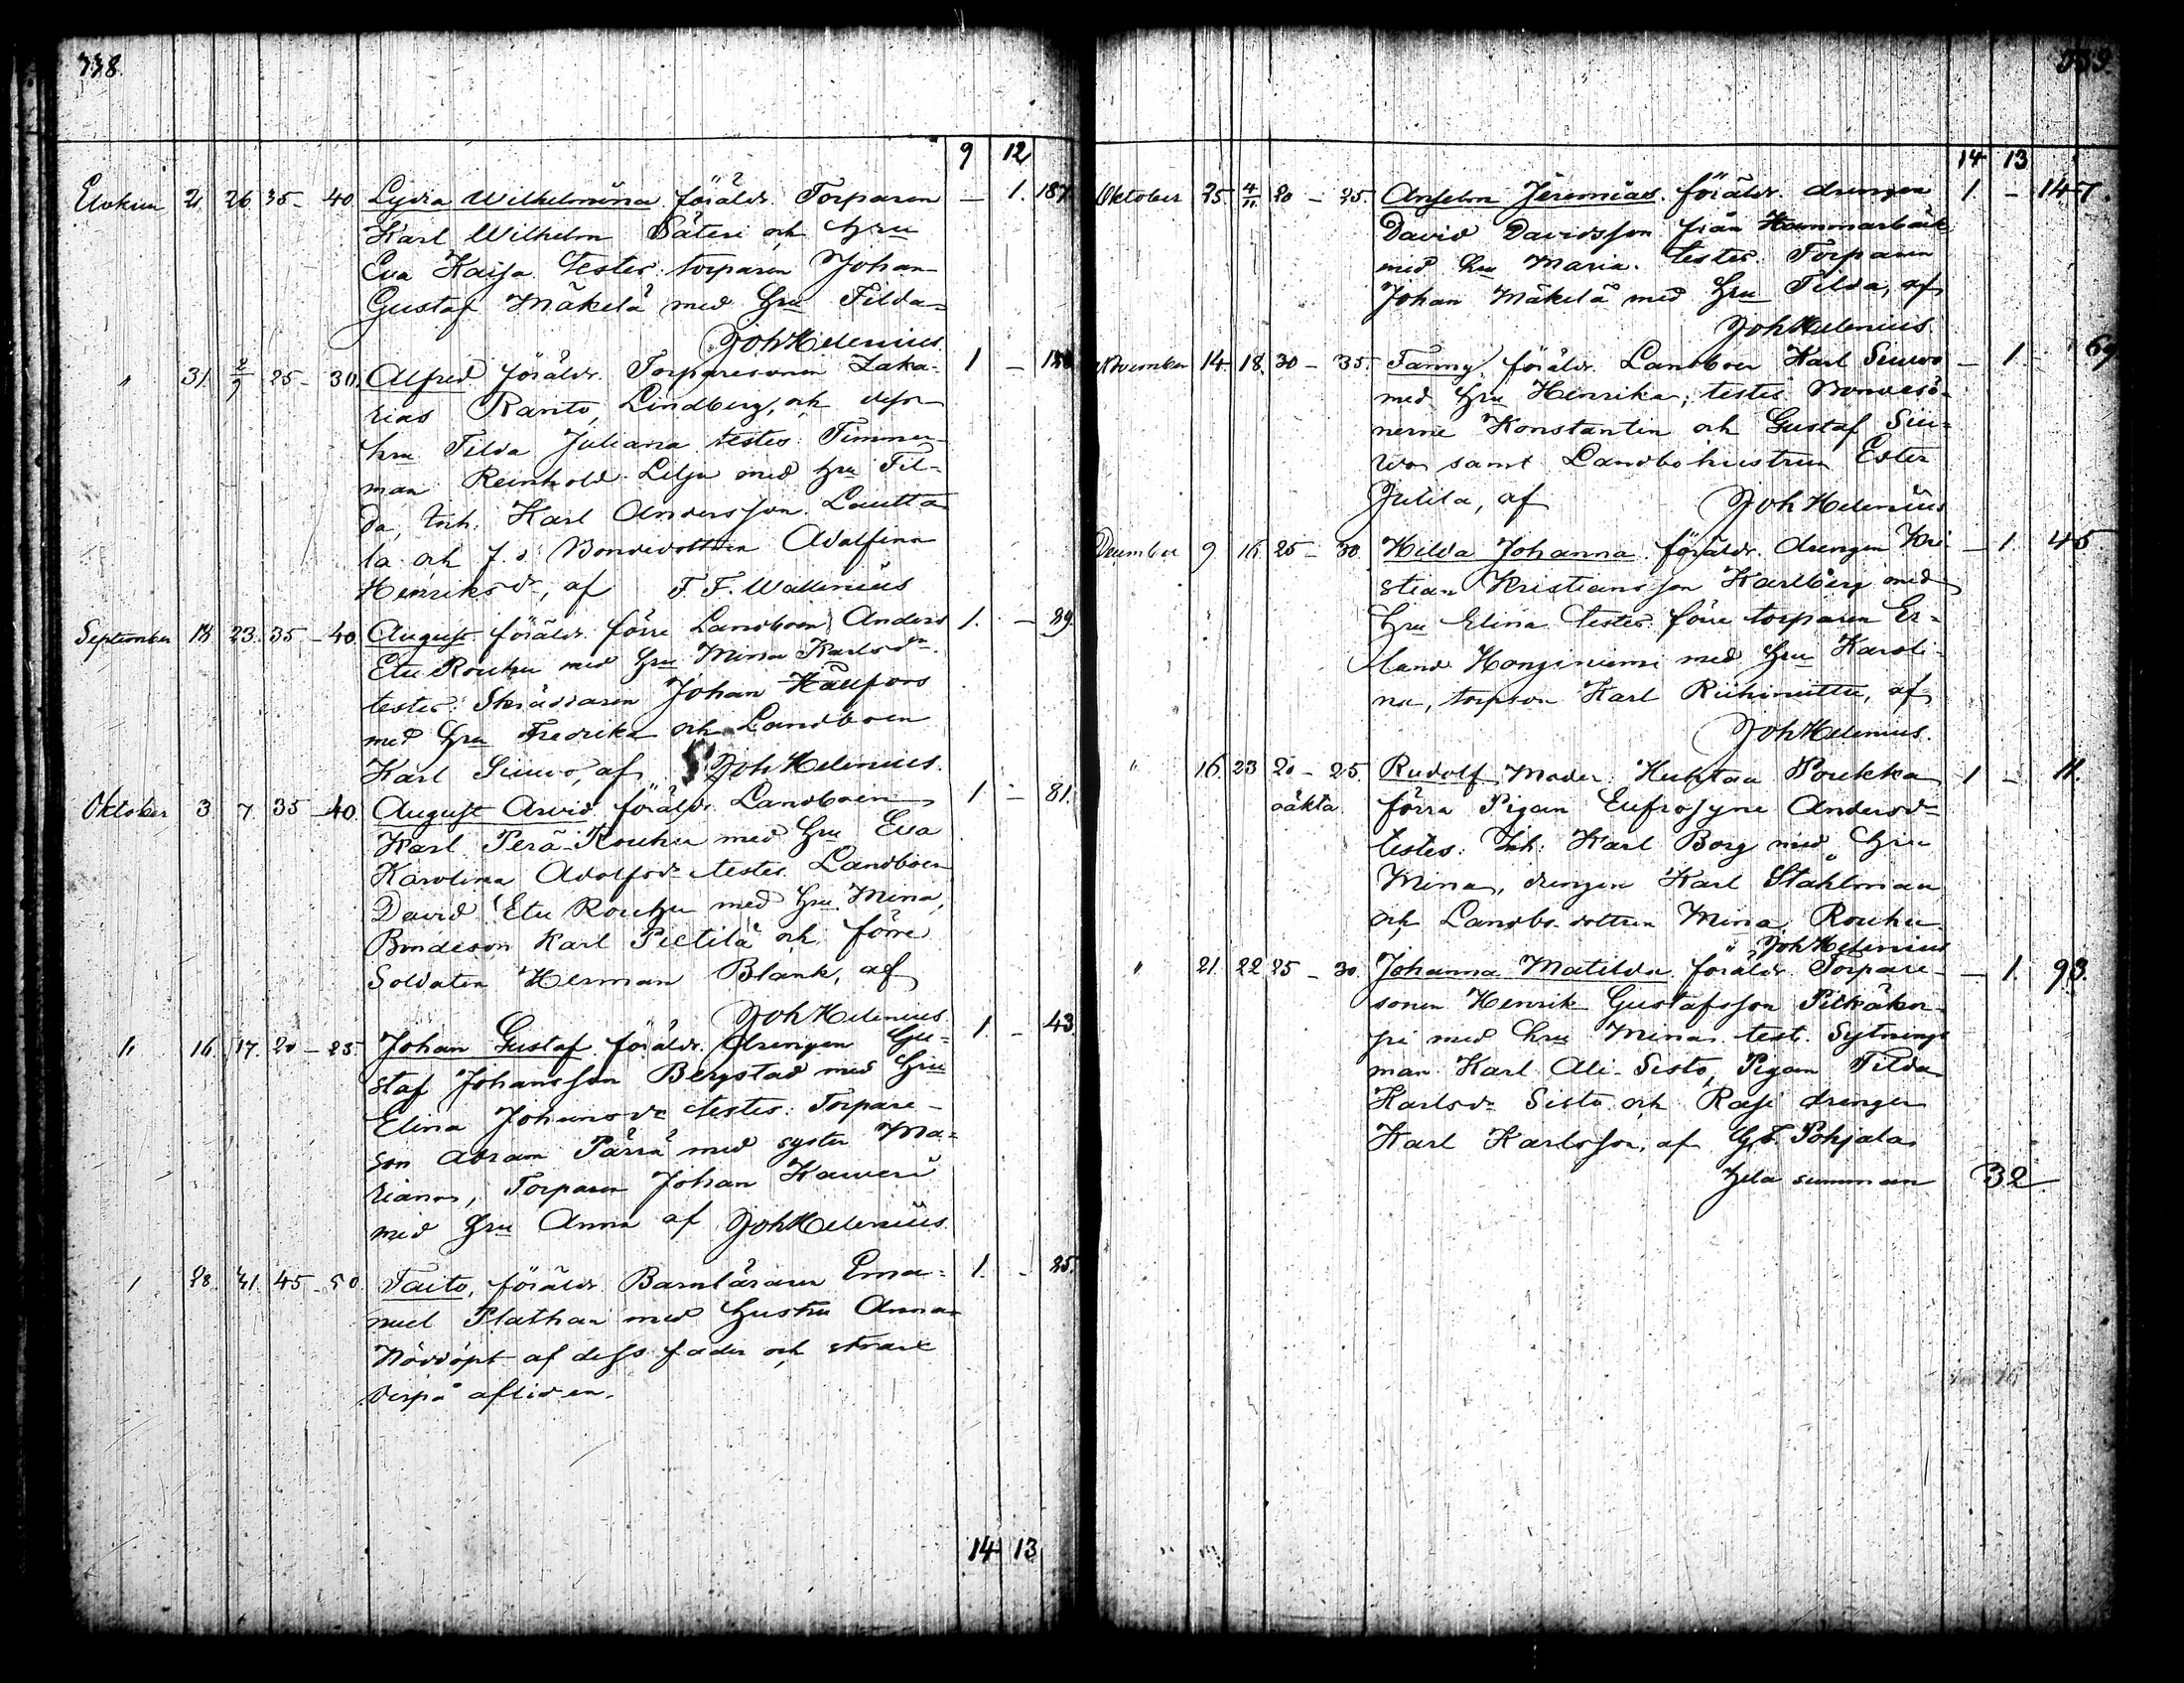 338
9 12
Elokuu 21 26 35 - 40 Lydia Wilhelmina föräldr. Torparen — 1. 187.
Karl Wilhelm Säteri och hru
Eva Kaisa. testes torparen Johan
Gustaf Mäkelä med hru Tilda
Joh Helenius
" 31. 2/9 25 - 30. Alfred föräldr. Torparesonen Zaka- 1 —
rias Ranto, Lindberg, och dess
hru Tilda Juliana testes: Timmer-
man Reinhold Lilja med hru Til-
da, Inh: Karl Andersson Lautta
la och f.d. Bondedottren Adolfina
Henriksdr, af F. F. Wallenius
September 18 23. 35 - 40. August föräldr. förre Landboen Anders 1. — 89.
Etu Rouhu med hru Mina Karlsdr.
testes: Skräddaren Johan Källfors
med hru Fredrika och Landboen
Karl Siuvo, af Joh Helenius.
Oktober 3. 7. 35 - 40. August Arvid föräldr. Landboen 1 — 81.
Karl Perä-Rouhu med hru Eva
Karolina Adolfsdr testes Landboen
David Etu Rouhu med hru Mina,
Bondeson Karl Pietilä och förre
Soldaten Herman Blank, af
Joh Helenius
" 16. 17. 20 - 25. Johan Gustaf föräldr. drengen Gu- 1. - 43
staf Johansson Bergstad med hru
Elina Johansdr testes: Torpare-
son Abram Pärrä med syster Ma-
riana, Torparen Johan Kaweri
med hru Anna af Joh Helenius.
" 28. 31. 45 - 50. Taito, föräldr. Barnläraren Ema- 1. - 25.
nuel Plathan med hustru Anna
Nöddöpt af dess fader och straxt
derpå afliden.
14 13
339.
14 13
Oktober 25. 4/11 20 - 25. Anselm Jeremias. föräldr. drengen 1. — 147.
David Davidsson från Hammarbäck
med hru Maria. testes. Torparen
Johan Mäkelä med hru Tilda, af
Joh Helenius.
November 14. 18. 30 - 35. Fanny. föräldr. Landboen Karl Siuvo — 1. 69
med hru Henrika; testes Bondesö-
nerne Konstantin och Gustaf Siu-
vo samt Landbohustrun Ester
Julila, af Joh Helenius
December 9. 16. 25 - 30. Hilda Johanna föräldr. drengen Kri- — 1. 45
stian Kristiansson Karlberg med
hru Elina testes. förre torparen Er-
land Honginiemi med hru Karoli-
na, torpson Karl Riihinittu, af
Joh Helenius.
" 16. 23 20 - 25. Rudolf Moder: Huhtaa Poukka 1 — 11.
oäkta. förra Pigan Eufrosyne Andersdr
testes: Inh: Karl Borg med hru
Mina, drengen Karl Ståhlman
och Landbo-dottren Mina Rouhu
Joh Helenius
" 21. 22 25 - 30. Johanna Matilda. föräldr. Torpare- — 1. 93.
sonen Henrik Gustafsson Pitkäkor-
pi med hru Mina. test. Sytnings
man Karl Ali-Sisto, Pigan Tilda
Karlsdr Sisto och Rasi drengen
Karl Karlsson, af G. F. Pohjala
Hela summan 32